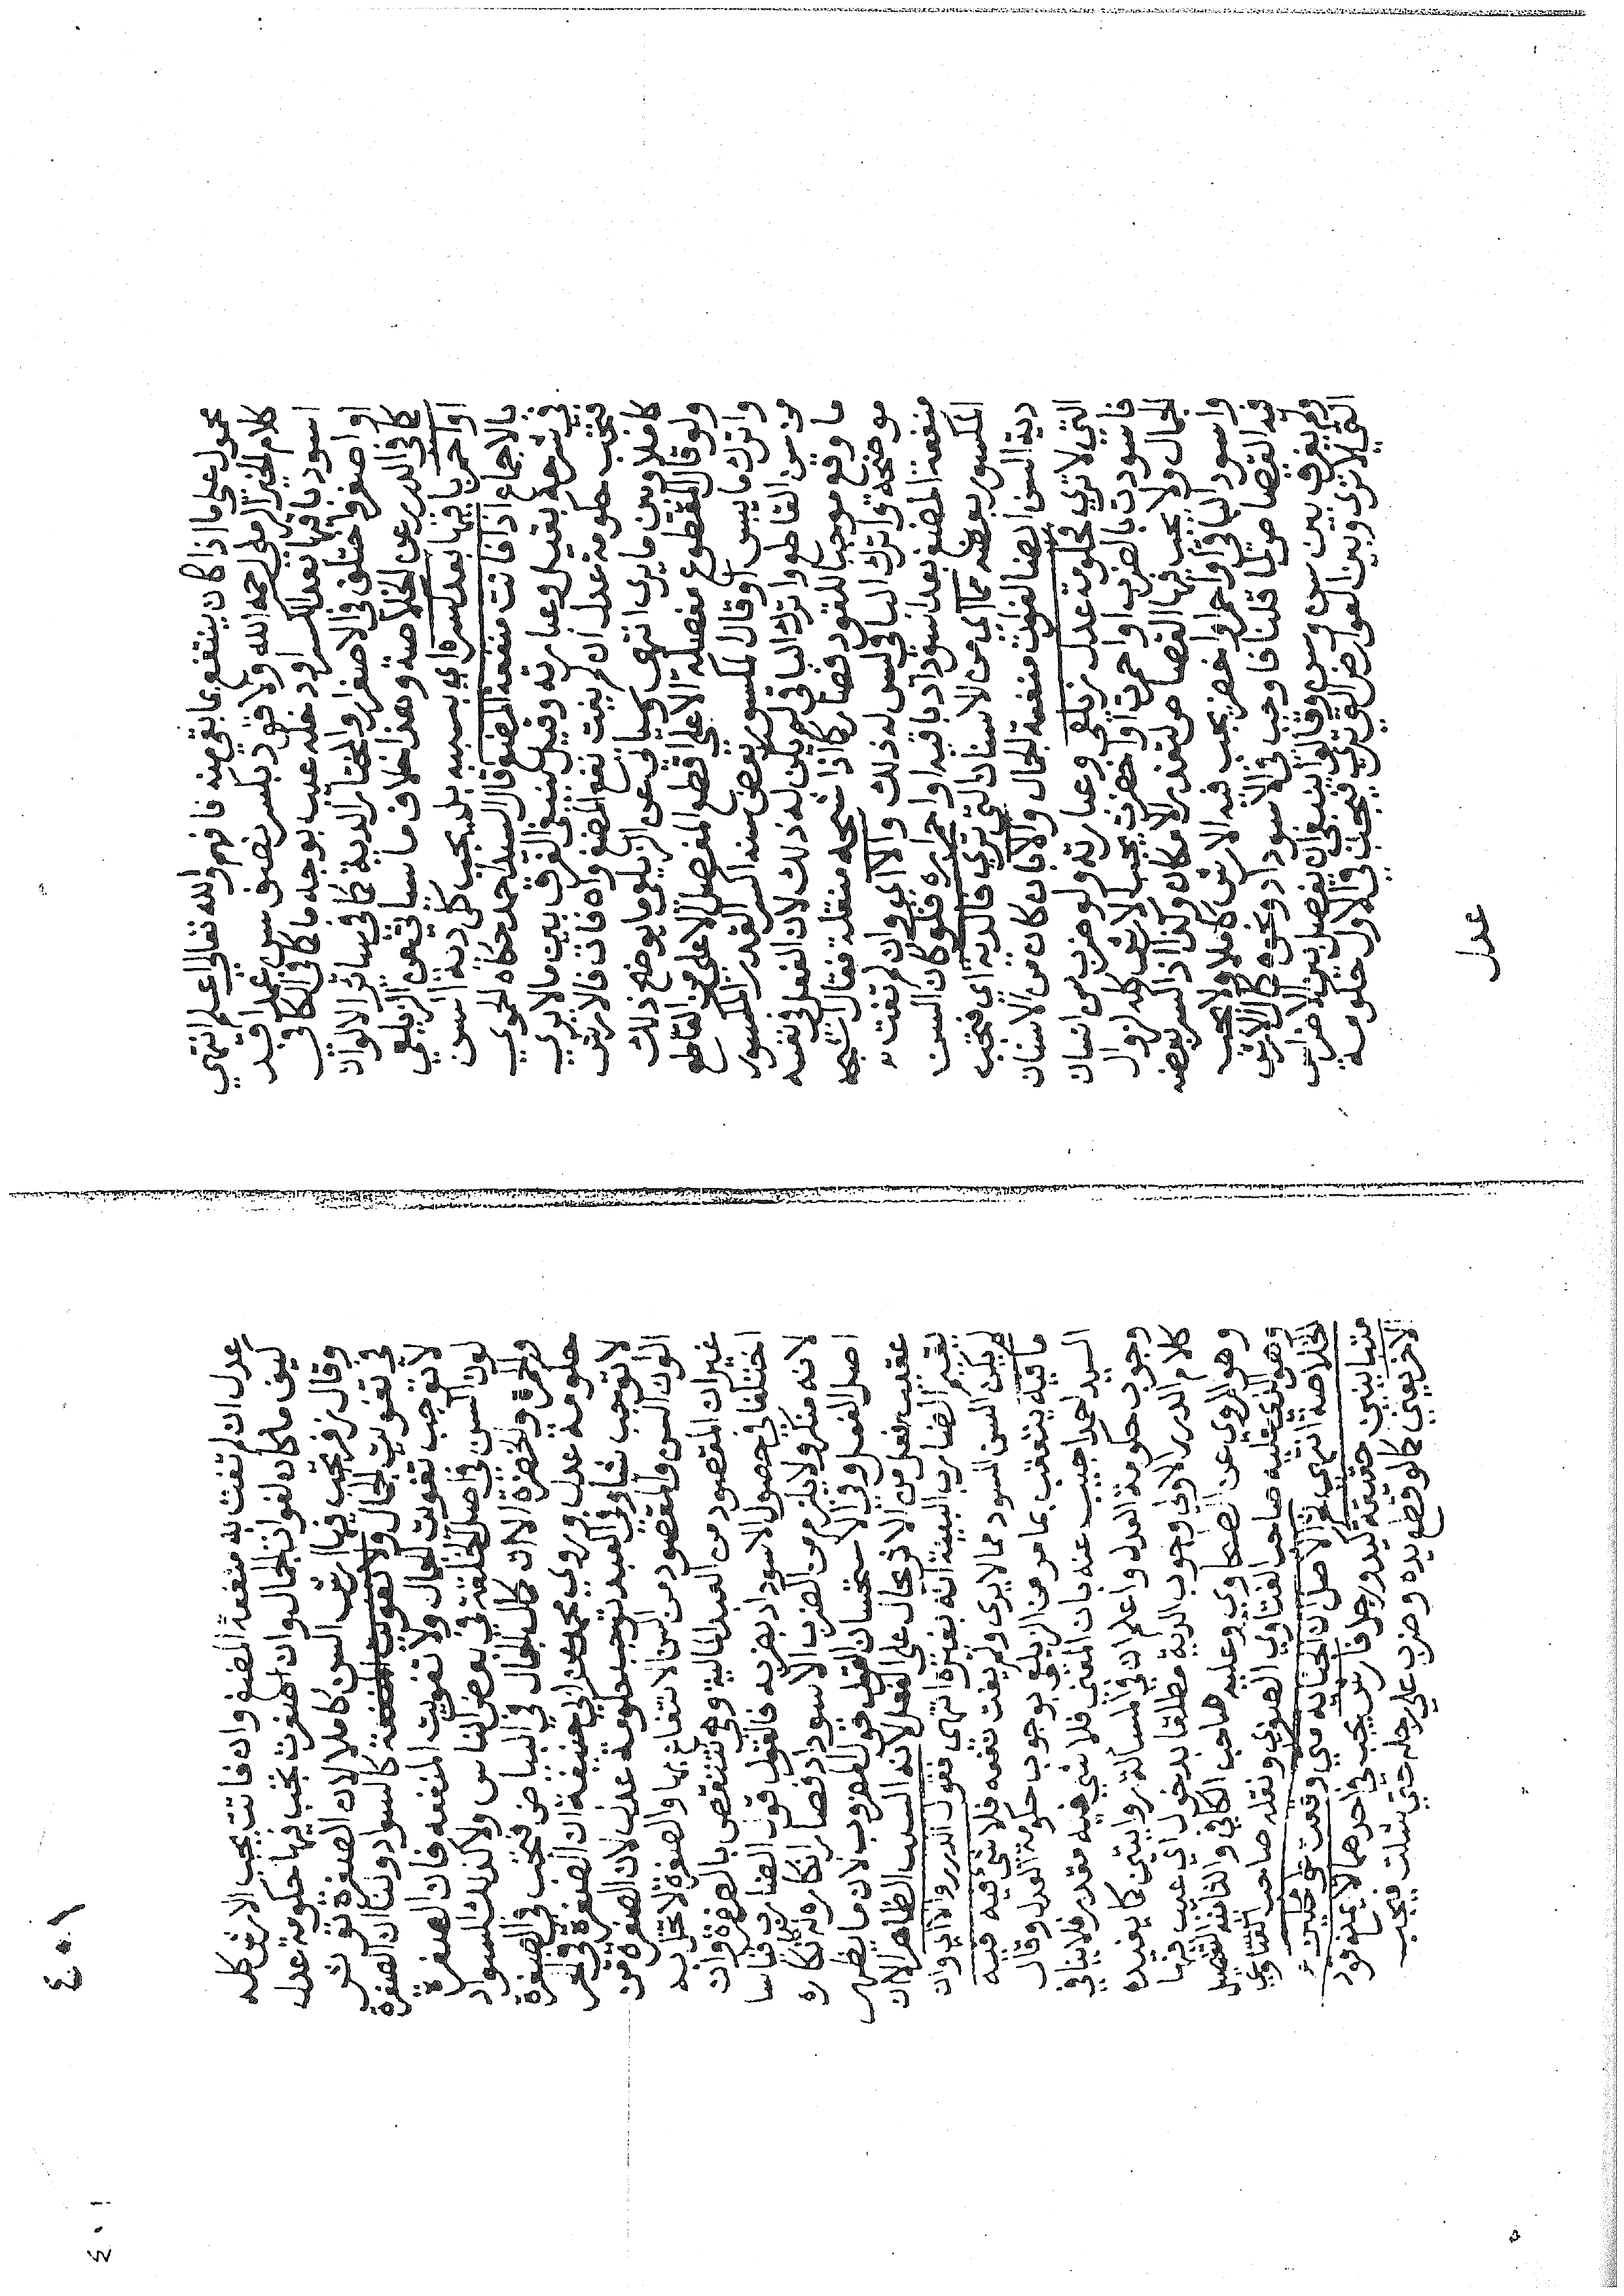 محمول على ما اذا كان ينتفع بما بقي منه فافهم والله تعالى اعلم انتهى
كلام الخير الرملي رحمه الله ولا قود بكسر نصف سن عمدا قيد
اسود باقيها بعد الكسر او دخله عيب بوجه ما كما في الكافي
او اصفر واختلف في الاصفرار والمختار الدية كما في سائر الالوان
كما في الدرر عن الخلاصة وهذا خلاف ما سياتي عن الزيلعي
او احمر باقيها بعد كسره اي بسببه بل يجب كل دية السن
بالاجماع اذا فاتت منفعة المضغ قال السيد احمد حكاه الحموي
في شرحه بقيل وعبارته وقيل ينبغي الفرق بين ما لا يرى
فيجب حكومة عدل ان لم يفت نفع المضغ وان فات فالارش
كاملا وبين ما يرى انتهى وسياتي عن الزيلعي ما يوضح ذلك
ولو قال المقطوع مفصله الاعلى اقطع المفصل الاعلى من القاطع
واترك ما يبس او قال المكسور بعض سنه اكسر القدر المكسور
من سن القاطع واترك الباقي لم يكن له ذلك لان الفعل في نفسه
ما وقع موجبا للقود فصار كما اذا شجه منقلة فقال اشجه
موضحة واترك الباقي ليس له ذلك والا اي وان لم تفت
منفعة المضغ بعد اسوداد باقيه او احمراره فلو كان السن
المكسور بعضه مما اي من الاسنان التي ترى فالدية اي فتجب
دية السن ايضا لفوات منفعة الجمال والا بان كان من الاسنان
التي لا ترى فحكومة عدل زيلعي وعبارته ولو ضرب سن انسان
فاسودت بالضرب او احمرت او اخضرت يجب الارش كله لزوال
الجمال ولا يجب فيها القصاص لتعذر الامكان وكذا اذا كسر بعضه
واسود الباقي او احمر او اخضر يجب فيه الارش كاملا ولا يجب
فيه القصاص لما قلنا فاوجب في الاسوداد ونحوه كمال الارش
ولم يفرق بين سن وسن وقالوا ينبغي ان يفصل بين الاضراس
التي لا ترى وبين العوارض التي ترى فيجب في الاول حكومة
عدل
٤٠١
عدل ان لم تفت به منفعة المضغ وان فاتت يجب الارش كله
كيف ما كان لفوات الجمال وان اصفرت تجب فيها حكومة عدل
وقال زفر تجب فيها ارش السن كاملا لان الصفرة تؤثر
في تفويت الجمال ولا تفويت المنفعة كالسواد ولنا ان الصفرة
لا توجب تفويت الجمال ولا تفويت المنفعة فان الصفرة
لون السن في اصل الخلقة في بعض الناس ولا كذلك السواد
والحمرة والخضرة الا ان كمال الجمال في البياض فتجب في الصفرة
حكومة عدل وروى محمد عن ابي حنيفة ان الصفرة في الحر
لا توجب شيا وفي العبد توجب حكومة عدل لان الصفرة من
الوان السن والمقصود من السن الانتفاع بها والصفرة لا تخل به
غير ان المقصود من العبد المالية وهي تنتقص بالصفرة وان
اختلفا في حصول الاسوداد بضربه فالقول قول الضارب قياسا
لانه منكر ولا يلزم من الضرب الاسوداد فصار انكاره له كانكاره
اصل الفعل وفي الاستحسان القول قول المضروب لان ما يظهر
عقيب فعل من الاثر يحال على الفعل لانه السبب الظاهر الا ان
يقيم الضارب البينة انه بغيره انتهى فقول الدرر والا اي وان
لم يكن السن المسود مما لا يرى ولم يفت نفعه فلا شي فيه فيه
ما فيه يتعقب بما مر من الزيلعي بوجوب حكومة العدل وقال
السيد احمد اجيب عنه بان المعنى فلا شي فيه مقدر فلا ينافي
وجوب حكومة العدل واعلم ان في المسالة روايتين كما يفيده
كلام الدرر الاولى وجوب الدية مطلقا بدخول اي عيب فيها
وهو المروي عن الطحاوي وعليه صاحب الكافي والثانية التفصيل
وهو الذي عليه صاحب الفتاوى الصغرى ونقله صاحب الفتاوي
الخلاصة انتهى ثم الاصل ان الجناية متى وقعت على محلين
متباينين حقيقة كيد ورجل فارش يجب في احدهما لا يمنع قود
الاخر يعني كما لو قطع يده وضرب على رجله حتى شلت فيجب
٤٠١